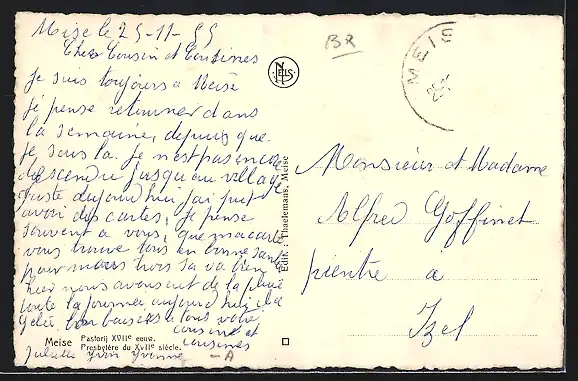 Meise le 25-11-55
Cher Cousin et Cousines
Je suis toujours a Meise
je pense retourner dans
la semaine, depuis que
je suis la je n'est pas encore
descendu jusqu'au village
juste aujourd'hui j'ai put
avoir des cartes, je pense
souvent a vous, que ma carte
vous trouve tous en bonne santé
pour nous trois sa va bien
hier nous avons eut de la pluie
toute la journée aujourd'hui il a
gelé, bon baisers a tous votre
cousine et
cousines
Juliette Yvon Yvonne -A
Meise Pastorij XVIIe eeuw.
Presbytère du XVIIe siècle.
BR
NELS
Edit. : Thaelemans, Meise
MEIS
Monsieur et Madame
Alfred Goffinet
peintre a
Izel